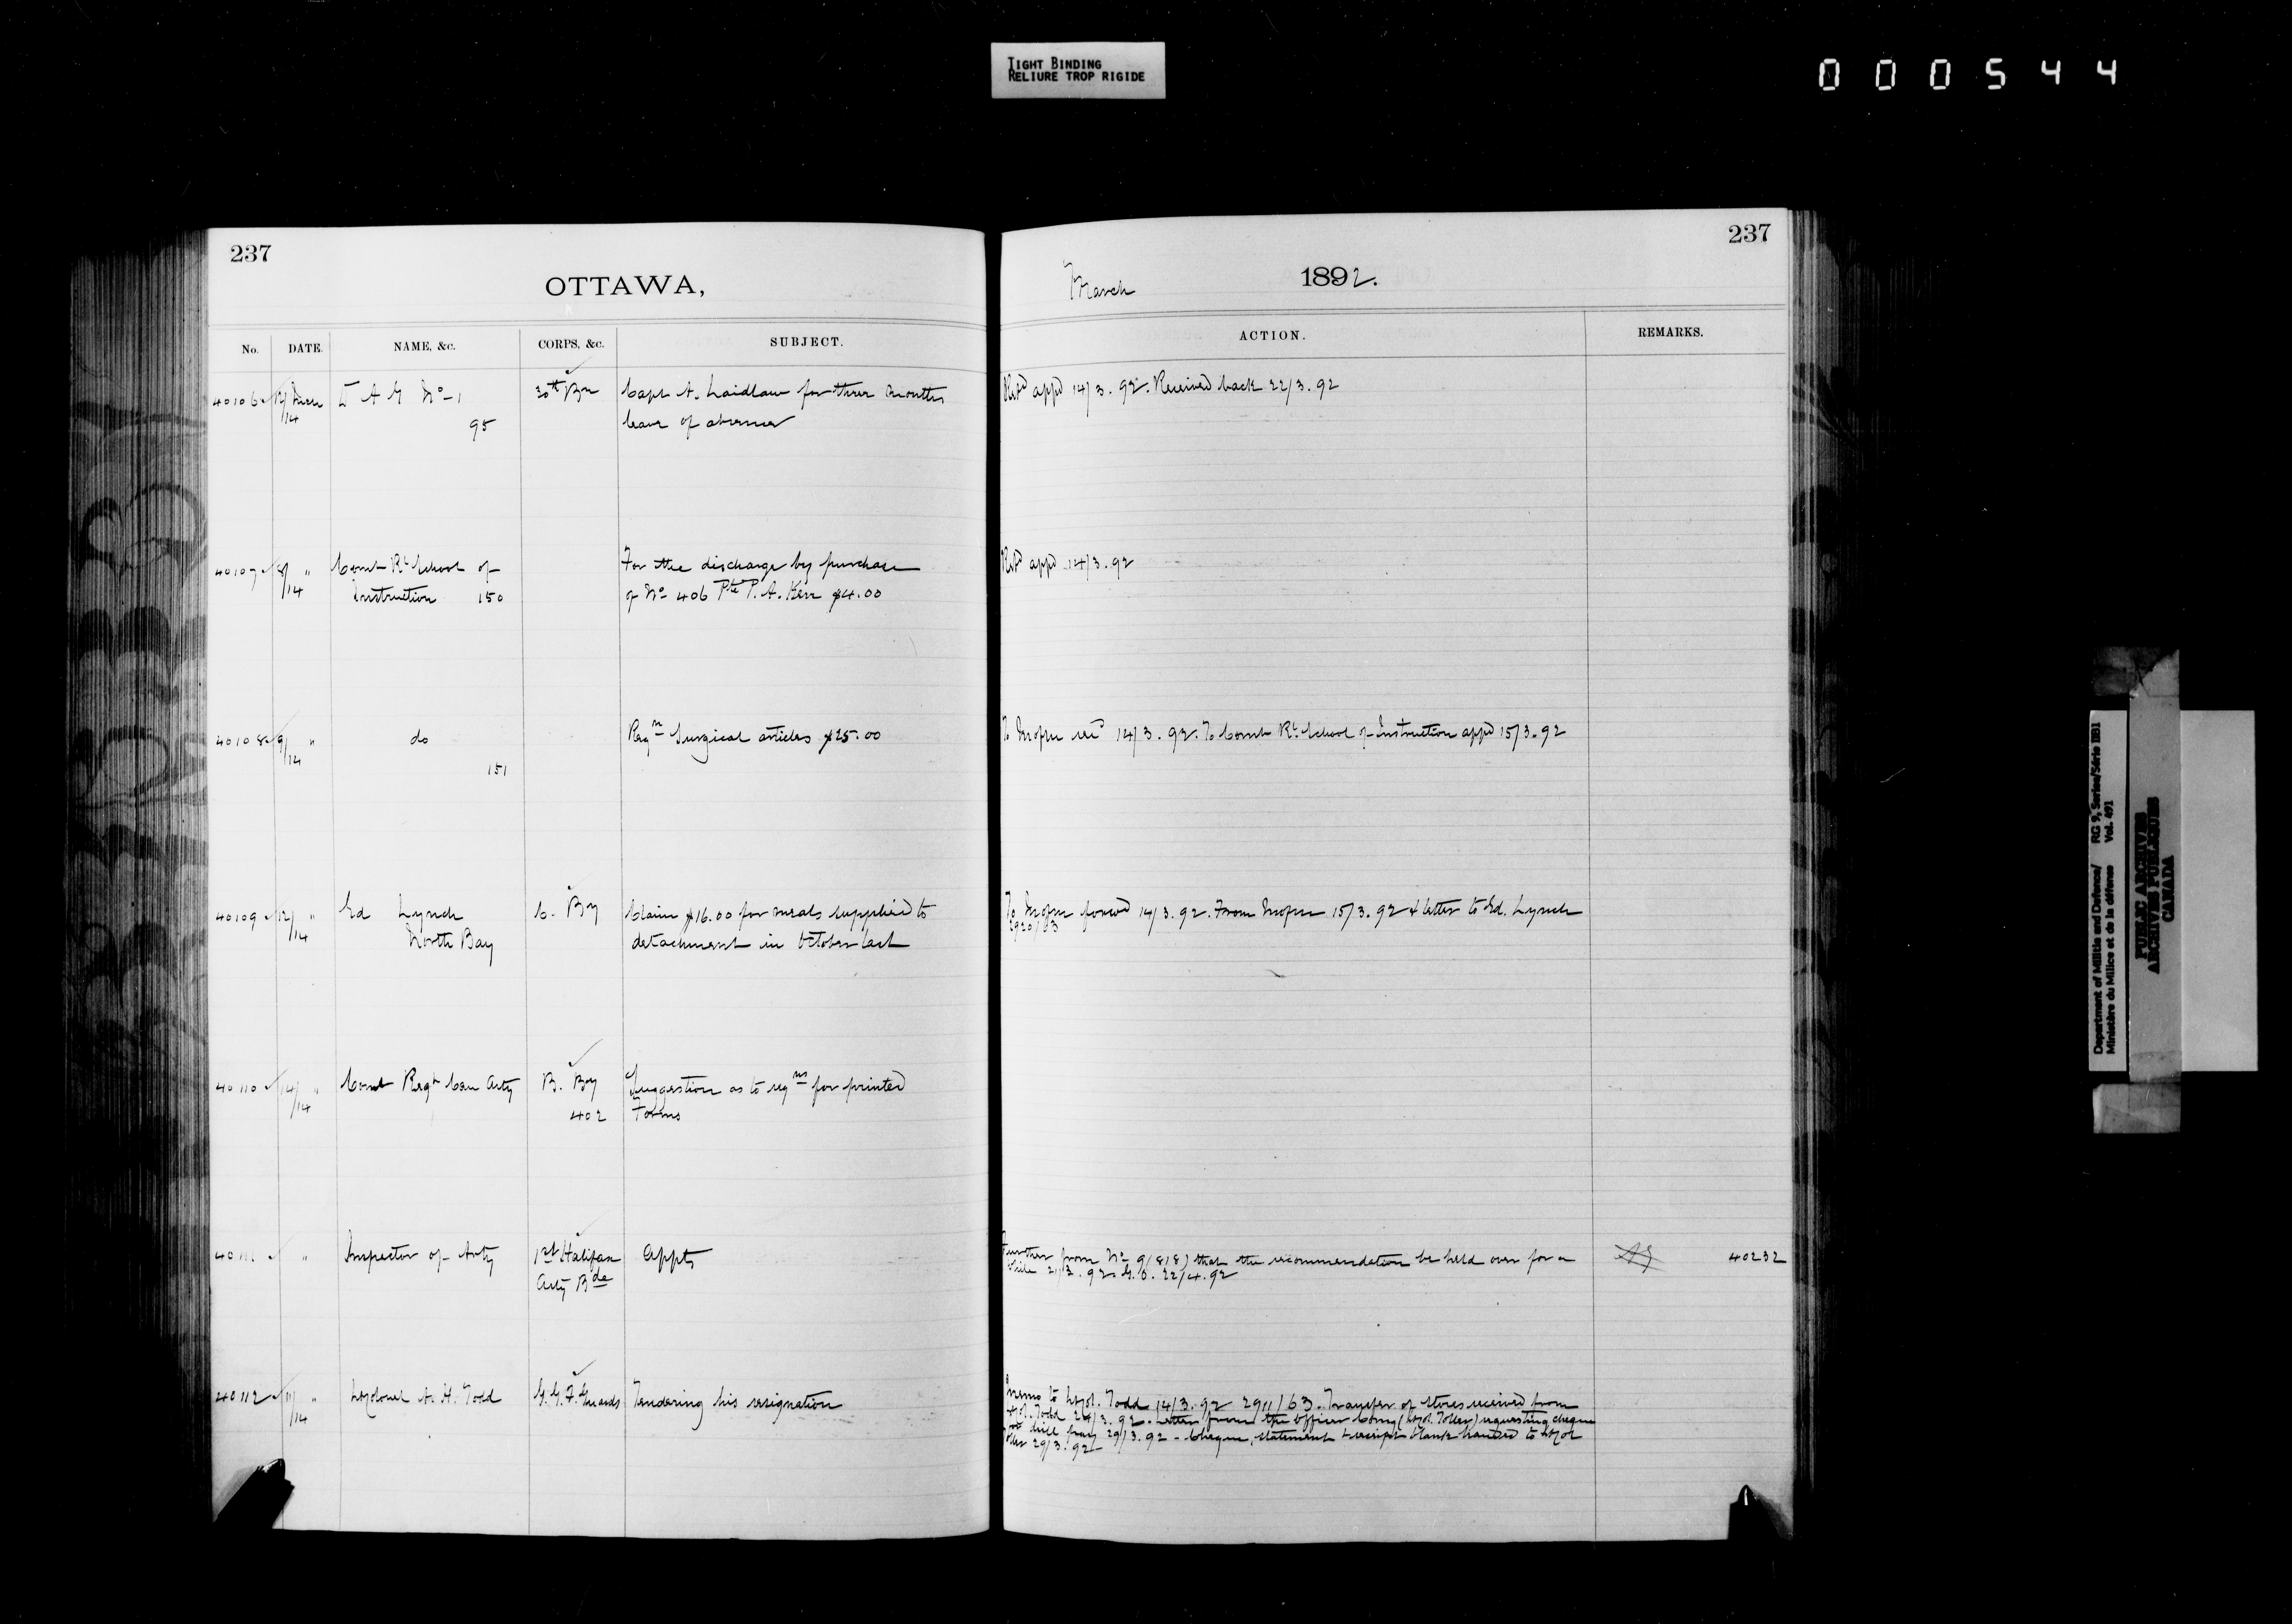 TIGHT BINDING
RELIURE TROP RIGIDE
000544
237
OTTAWA,
No. DATE. NAME, &c. CORPS, &c. SUBJECT.
40106 12/ Mch D A G No 1 30th Bn Capt A. Laidlaw for three months
/14 95 leave of absence
40107 8/ " Comt Rl School of For the discharge by purchase
/14 Instruction 150 of No 406 Pte P. A. Kerr $4.00
40108 9/ " do Reqn Surgical articles $25.00
/14
151
40109 12/ " Ed Lynch C. By Claim $16.00 for meals supplied to
/14 North Bay detachment in October last
40110 14/ " Comt Regt Can Arty B. By Suggestion as to reqns for printed
/14 402 Forms
40111 " Inspector of Arty 1st Halifax Appts
Arty Bde
40112 11/ " Lt Colonel A. H. Todd G. G. F. Guards Tendering his resignation
/14
237
March 1892.
ACTION. REMARKS.
Retd appd 14/3.92. Received back 22/3.92
Retd appd 14/3.92
To 14/3.92. To Comt Rl School of Instruction appd 15/3.92
To forwd 14/3.92. From 15/3.92 & letter to Ed. Lynch
2920/63
Further from No 9 (818) that the recommendation be held over for a 40232
while 21/3.92 G.O. 22/4.92
Memo to Lt Col. Todd 14/3.92 2911/63. Transfer of stores received from
Lt Col. Todd 24/3.92. Letter from the Officer Comg (Lt Col. Toller) requesting cheque
for drill pay 29/3.92 - Cheque, statement & receipt blank handed to Lt Col
Toller 29/3.92
Department of Militia and Defence/ RG 9, Series/Série IIB1
Ministère du Milice et de la défense Vol. 491
PUBLIC ARCHIVES
ARCHIVES PUBLIQUES
CANADA